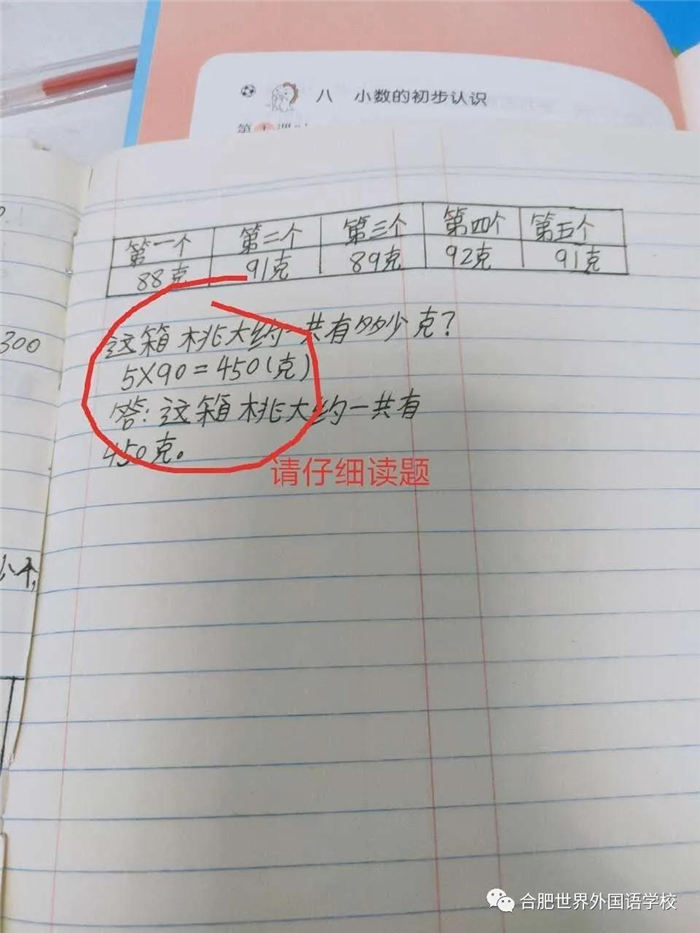 八 小数的初步认识
第1课
第一个 第二个 第三个 第四个 第五个
88克 91克 89克 92克 91克
300
这箱桃大约一共有多少克?
5×90=450(克)
答:这箱桃大约一共有
450克。
请仔细读题
合肥世界外国语学校